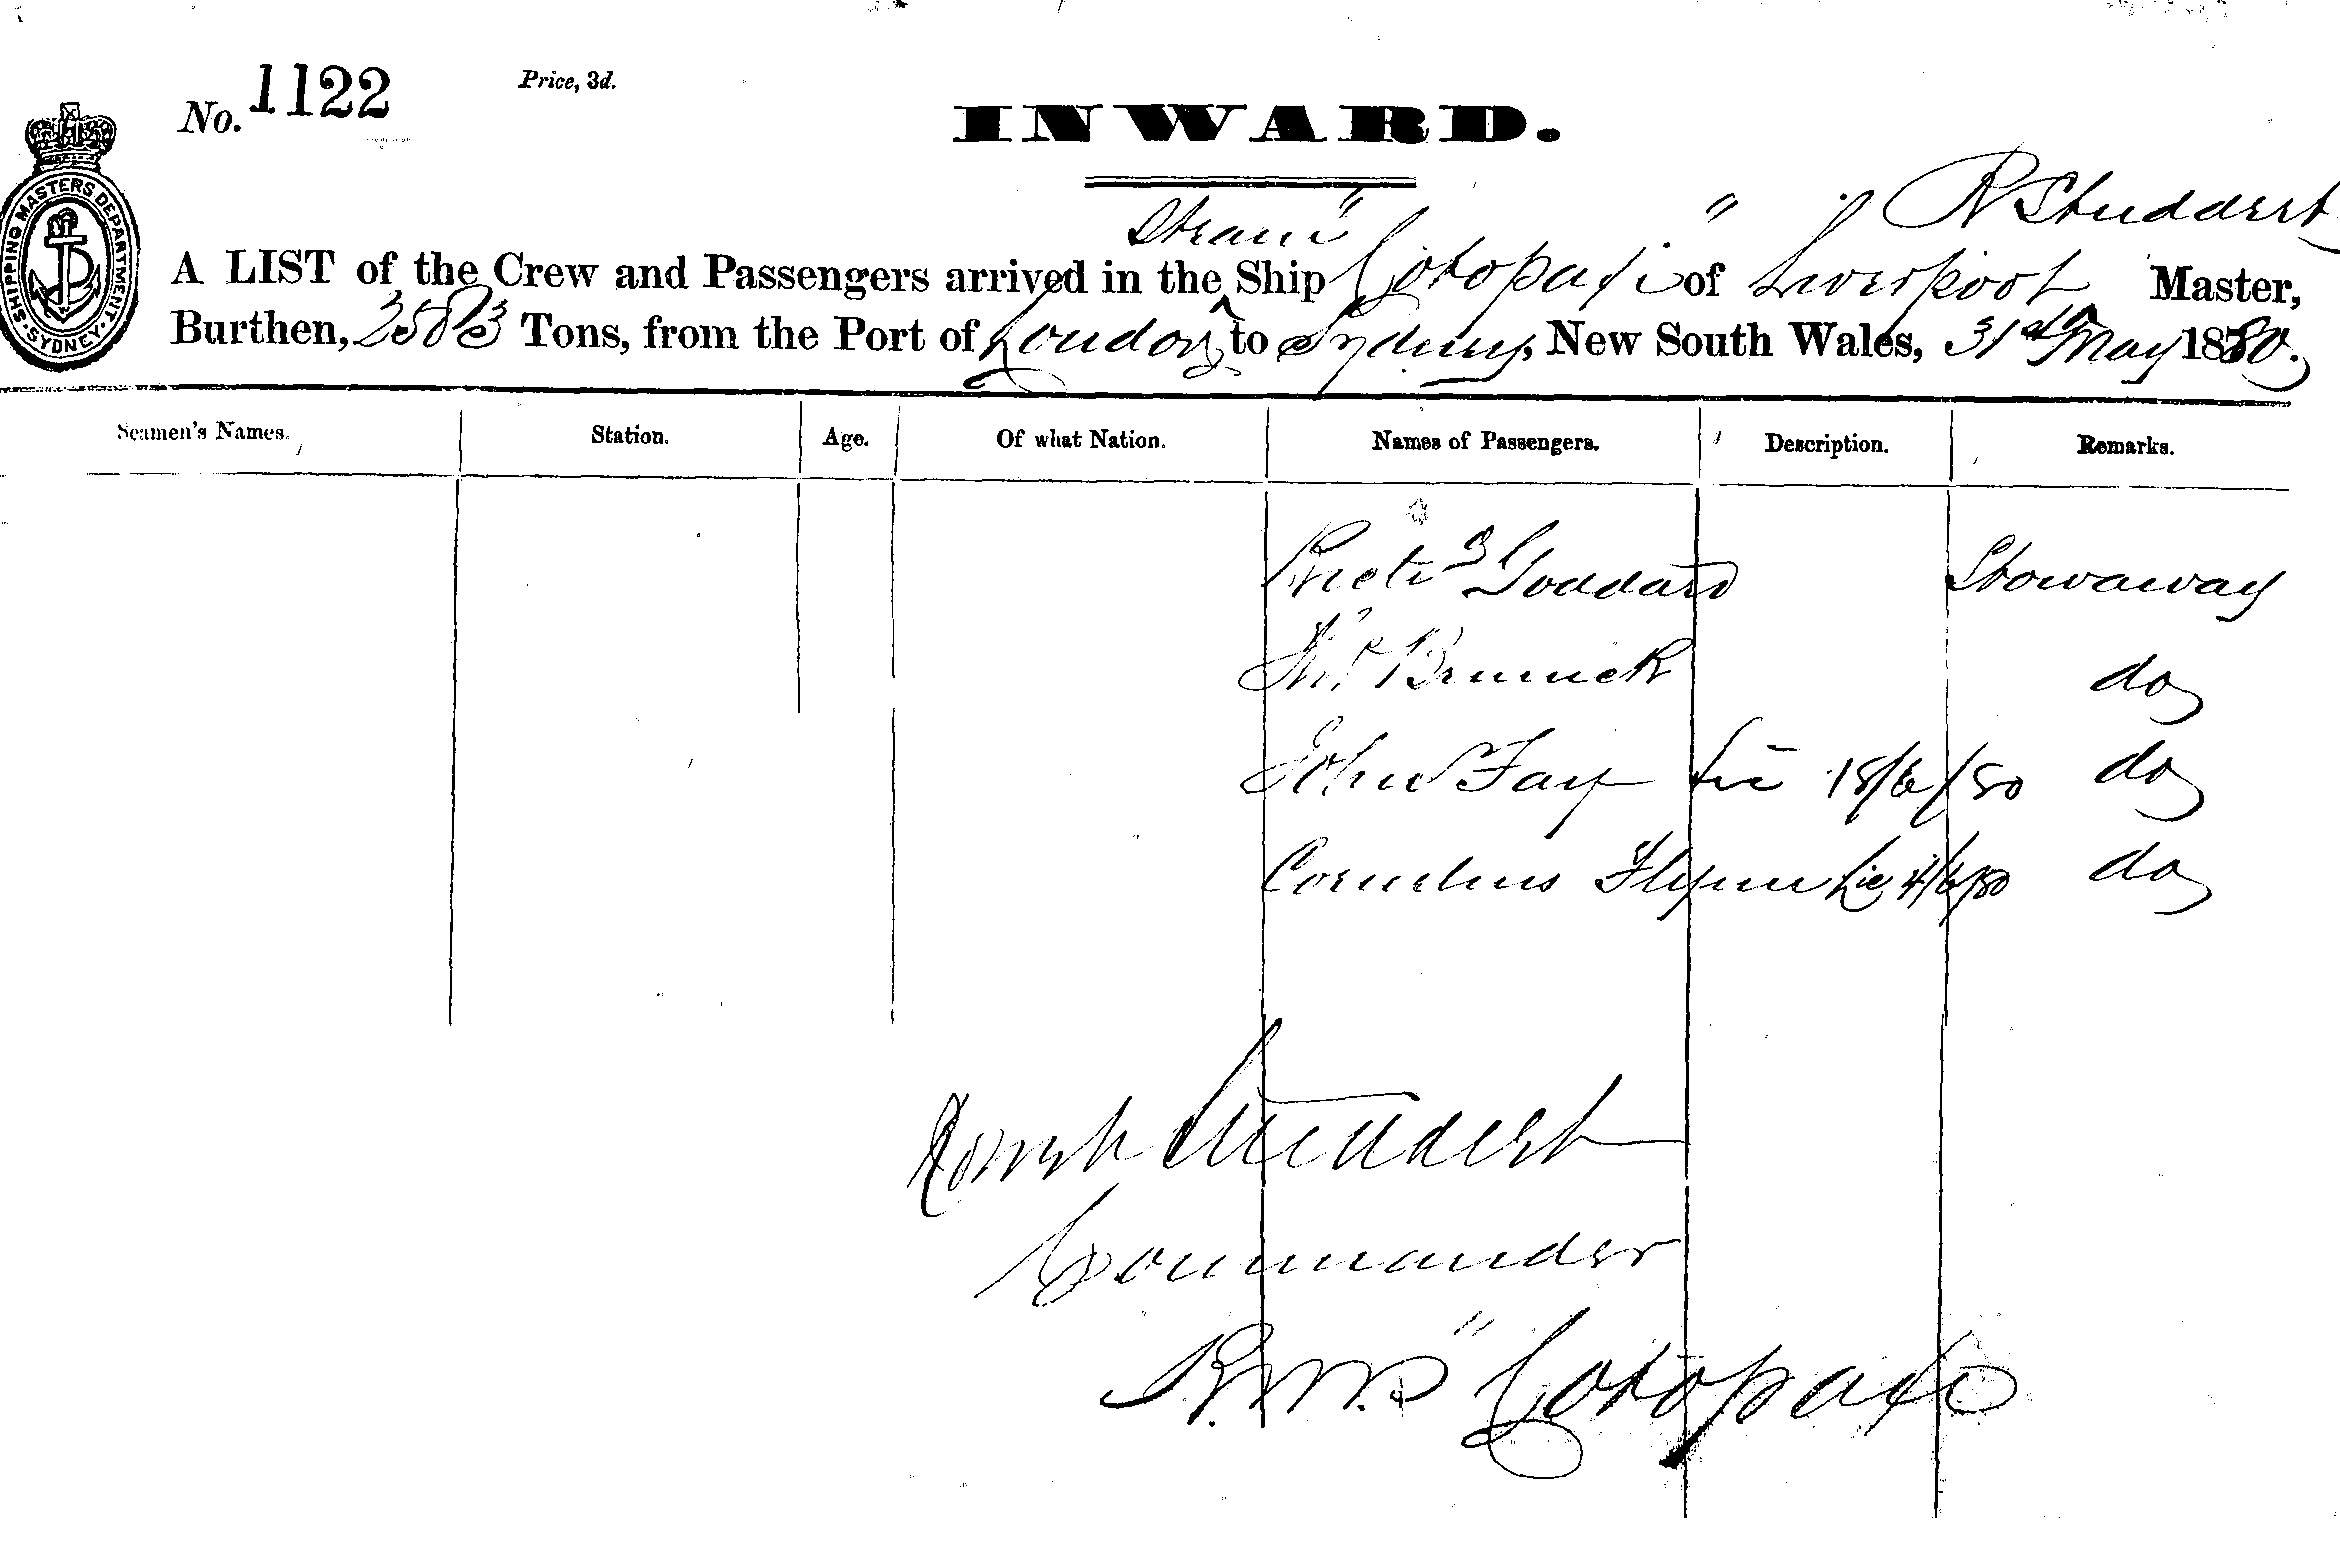 No. 1122
Price, 3d.
INWARD.
SHIPPING MASTERS DEPARTMENT. SYDNEY.
Steam " " of R Studdert
A LIST of the Crew and Passengers arrived in the Ship Cotopaxi of Liverpool Master,
Burthen, 2583 Tons, from the Port of London to Sydney, New South Wales, 31st May 1880.
Seamen's Names. Station. Age. Of what Nation. Names of Passengers. Description. Remarks.
Goddard Stowaway
do
John Fay 18/6/80 do
Cornelius Flynn 4/6/80 do
Studdert
Commander
R.M.S "Cotopaxi